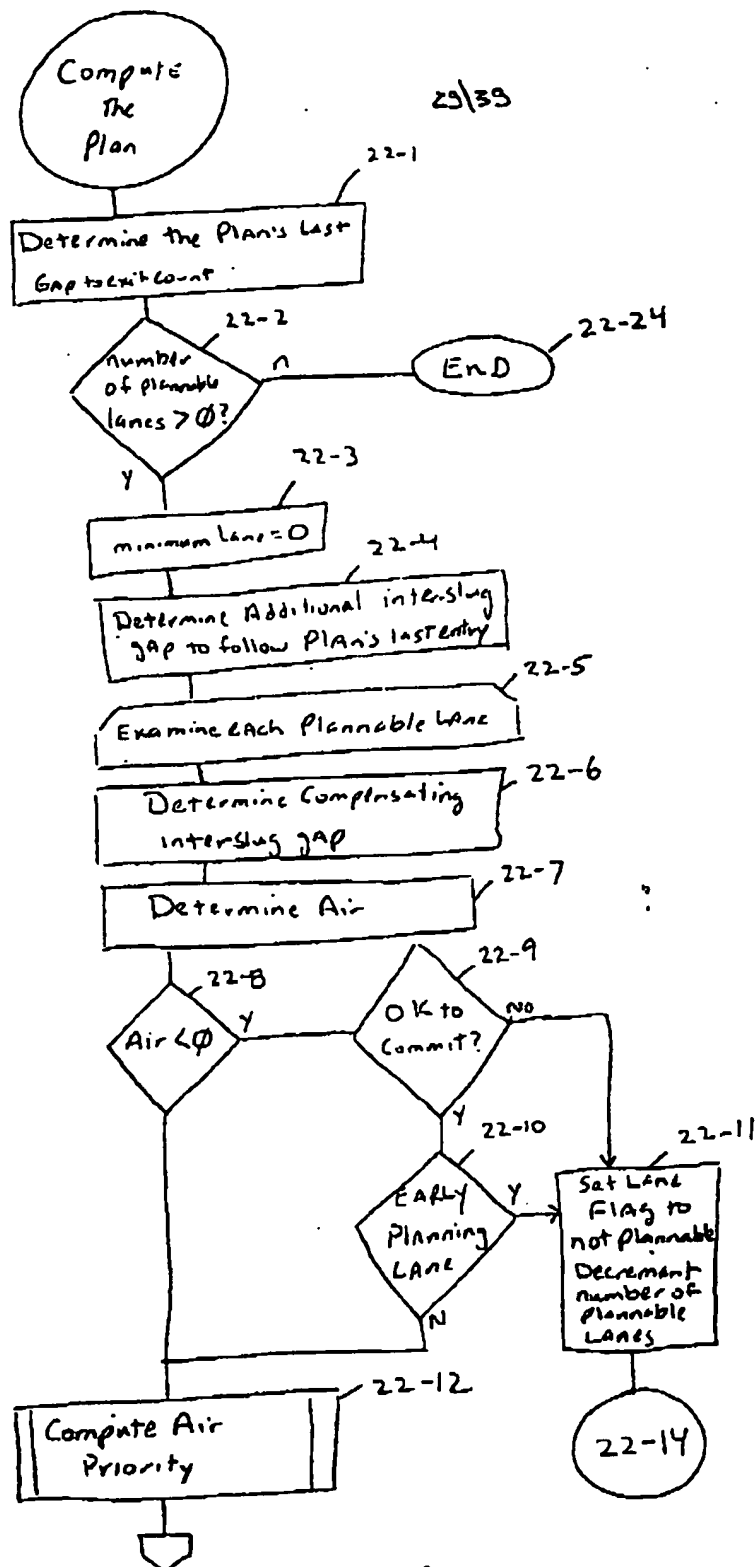 Compute
The
Plan
29/39
22-1
Determine the Plan's Last
Gap to exit count
22-2
number
of plannable
lanes > Ø?
n
22-24
End
Y
22-3
minimum Lane = 0
22-4
Determine Additional interslug
gap to follow Plan's last entry
22-5
Examine each Plannable Lane
22-6
Determine Compensating
interslug gap
22-7
Determine Air
22-8
Air < Ø
Y
22-9
OK to
Commit?
NO
Y
22-10
EARLY
Planning
LANE
Y
N
22-11
Set Lane
Flag to
not plannable
Decrement
number of
plannable
Lanes
22-12
Compute Air
Priority
22-14